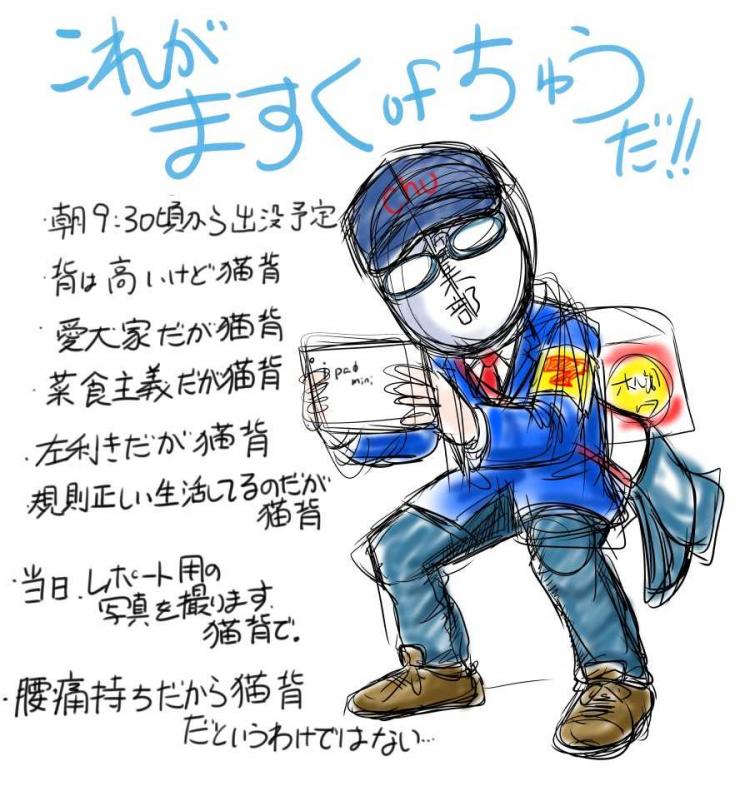 これが
ますくofちゅう
だ!!
・朝9:30頃から出没予定
・背は高いけど猫背
・愛犬家だが猫背
・菜食主義だが猫背
・左利きだが猫背
規則正しい生活してるのだが
猫背
・当日、レポート用の
写真を撮ります。
猫背で。
・腰痛持ちだから猫背
だというわけではない…
chu
部
ipad
mini